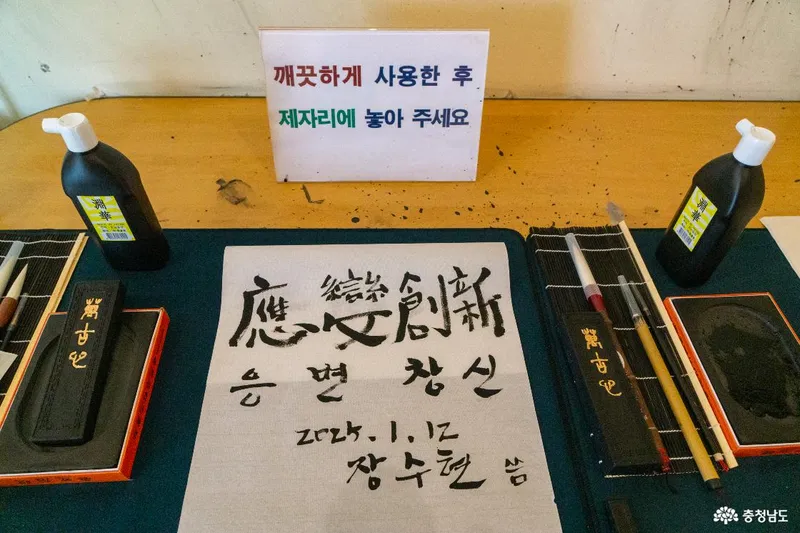 깨끗하게 사용한 후
제자리에 놓아 주세요
應變創新
응 변 창 신
2025.1.12
장수현 씀
萬古心
萬古心
충청남도